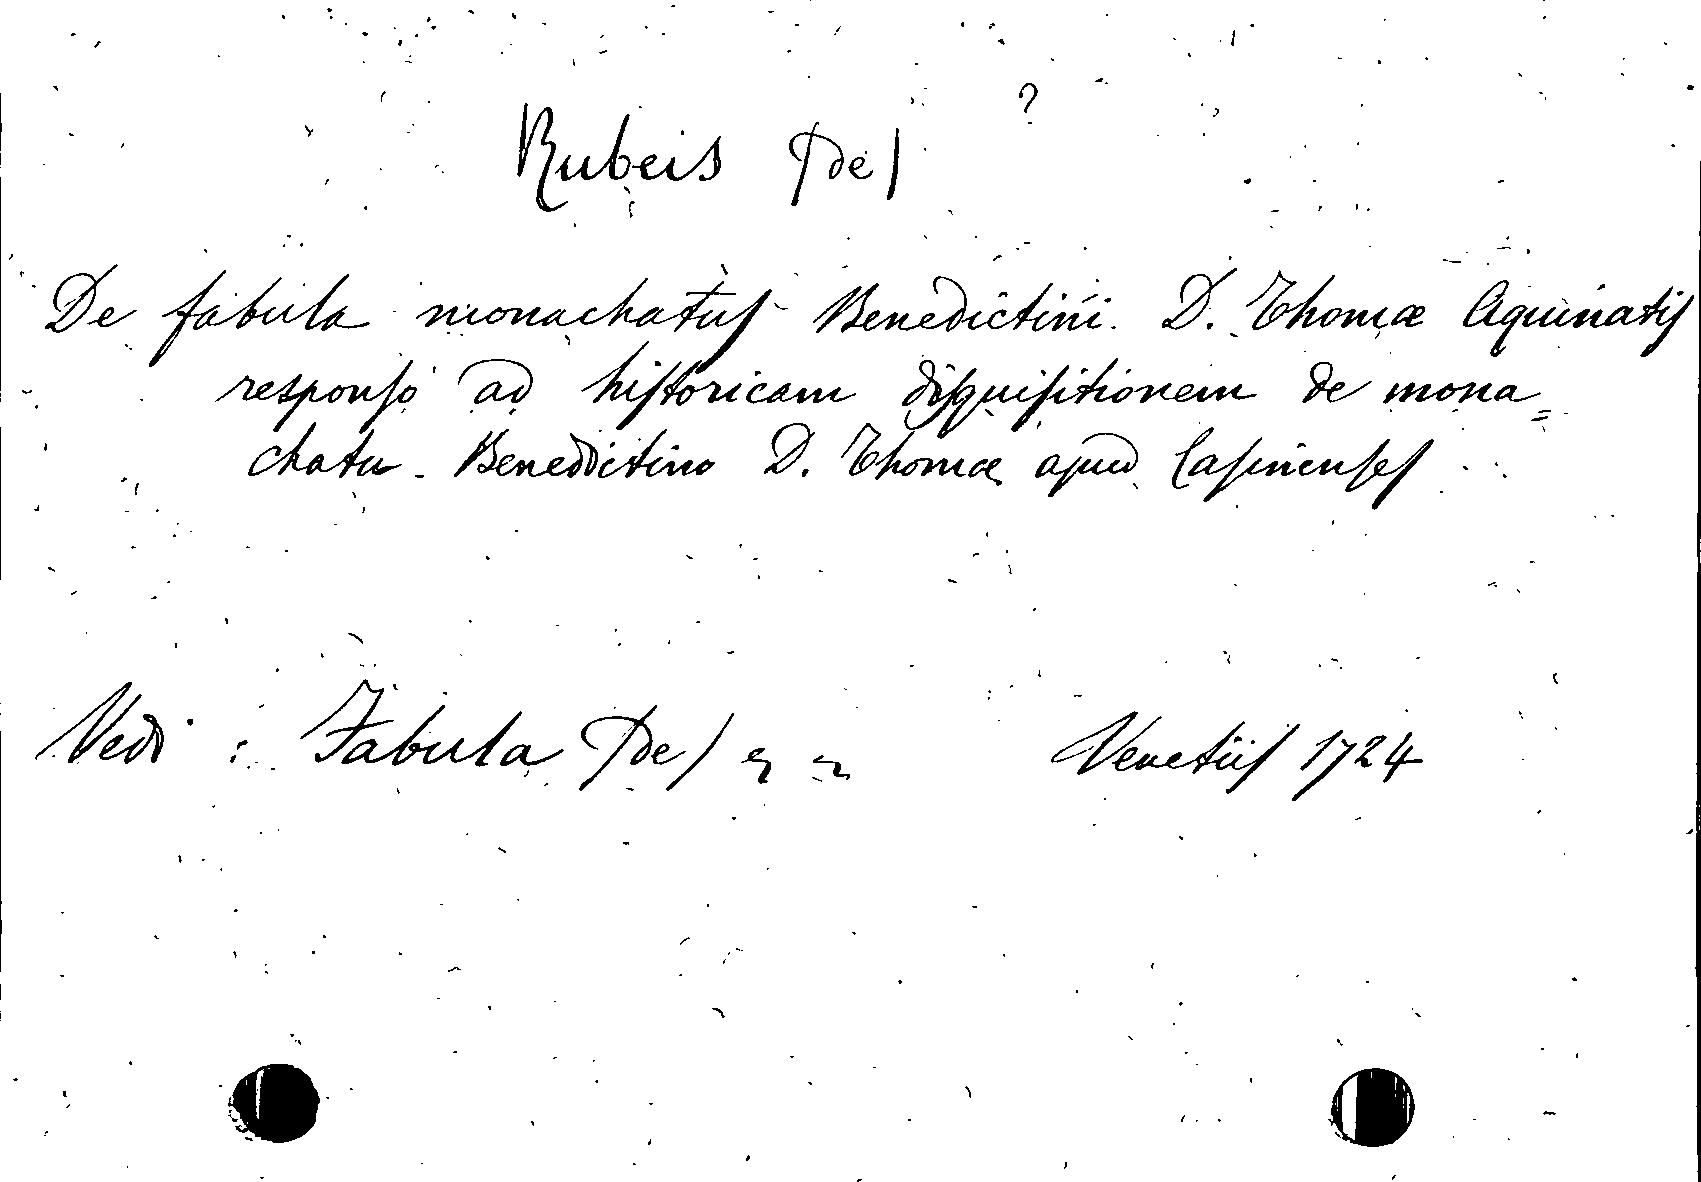 ?
Rubeis (de)
De fabula monachatus Benedictini D. Thomæ Aquinatis
responsio ad historicam disquisitionem de mona=
chatu Benedictino D. Thomæ apud Casinenses
Vedi : Fabula (de) " " Venetiis 1724